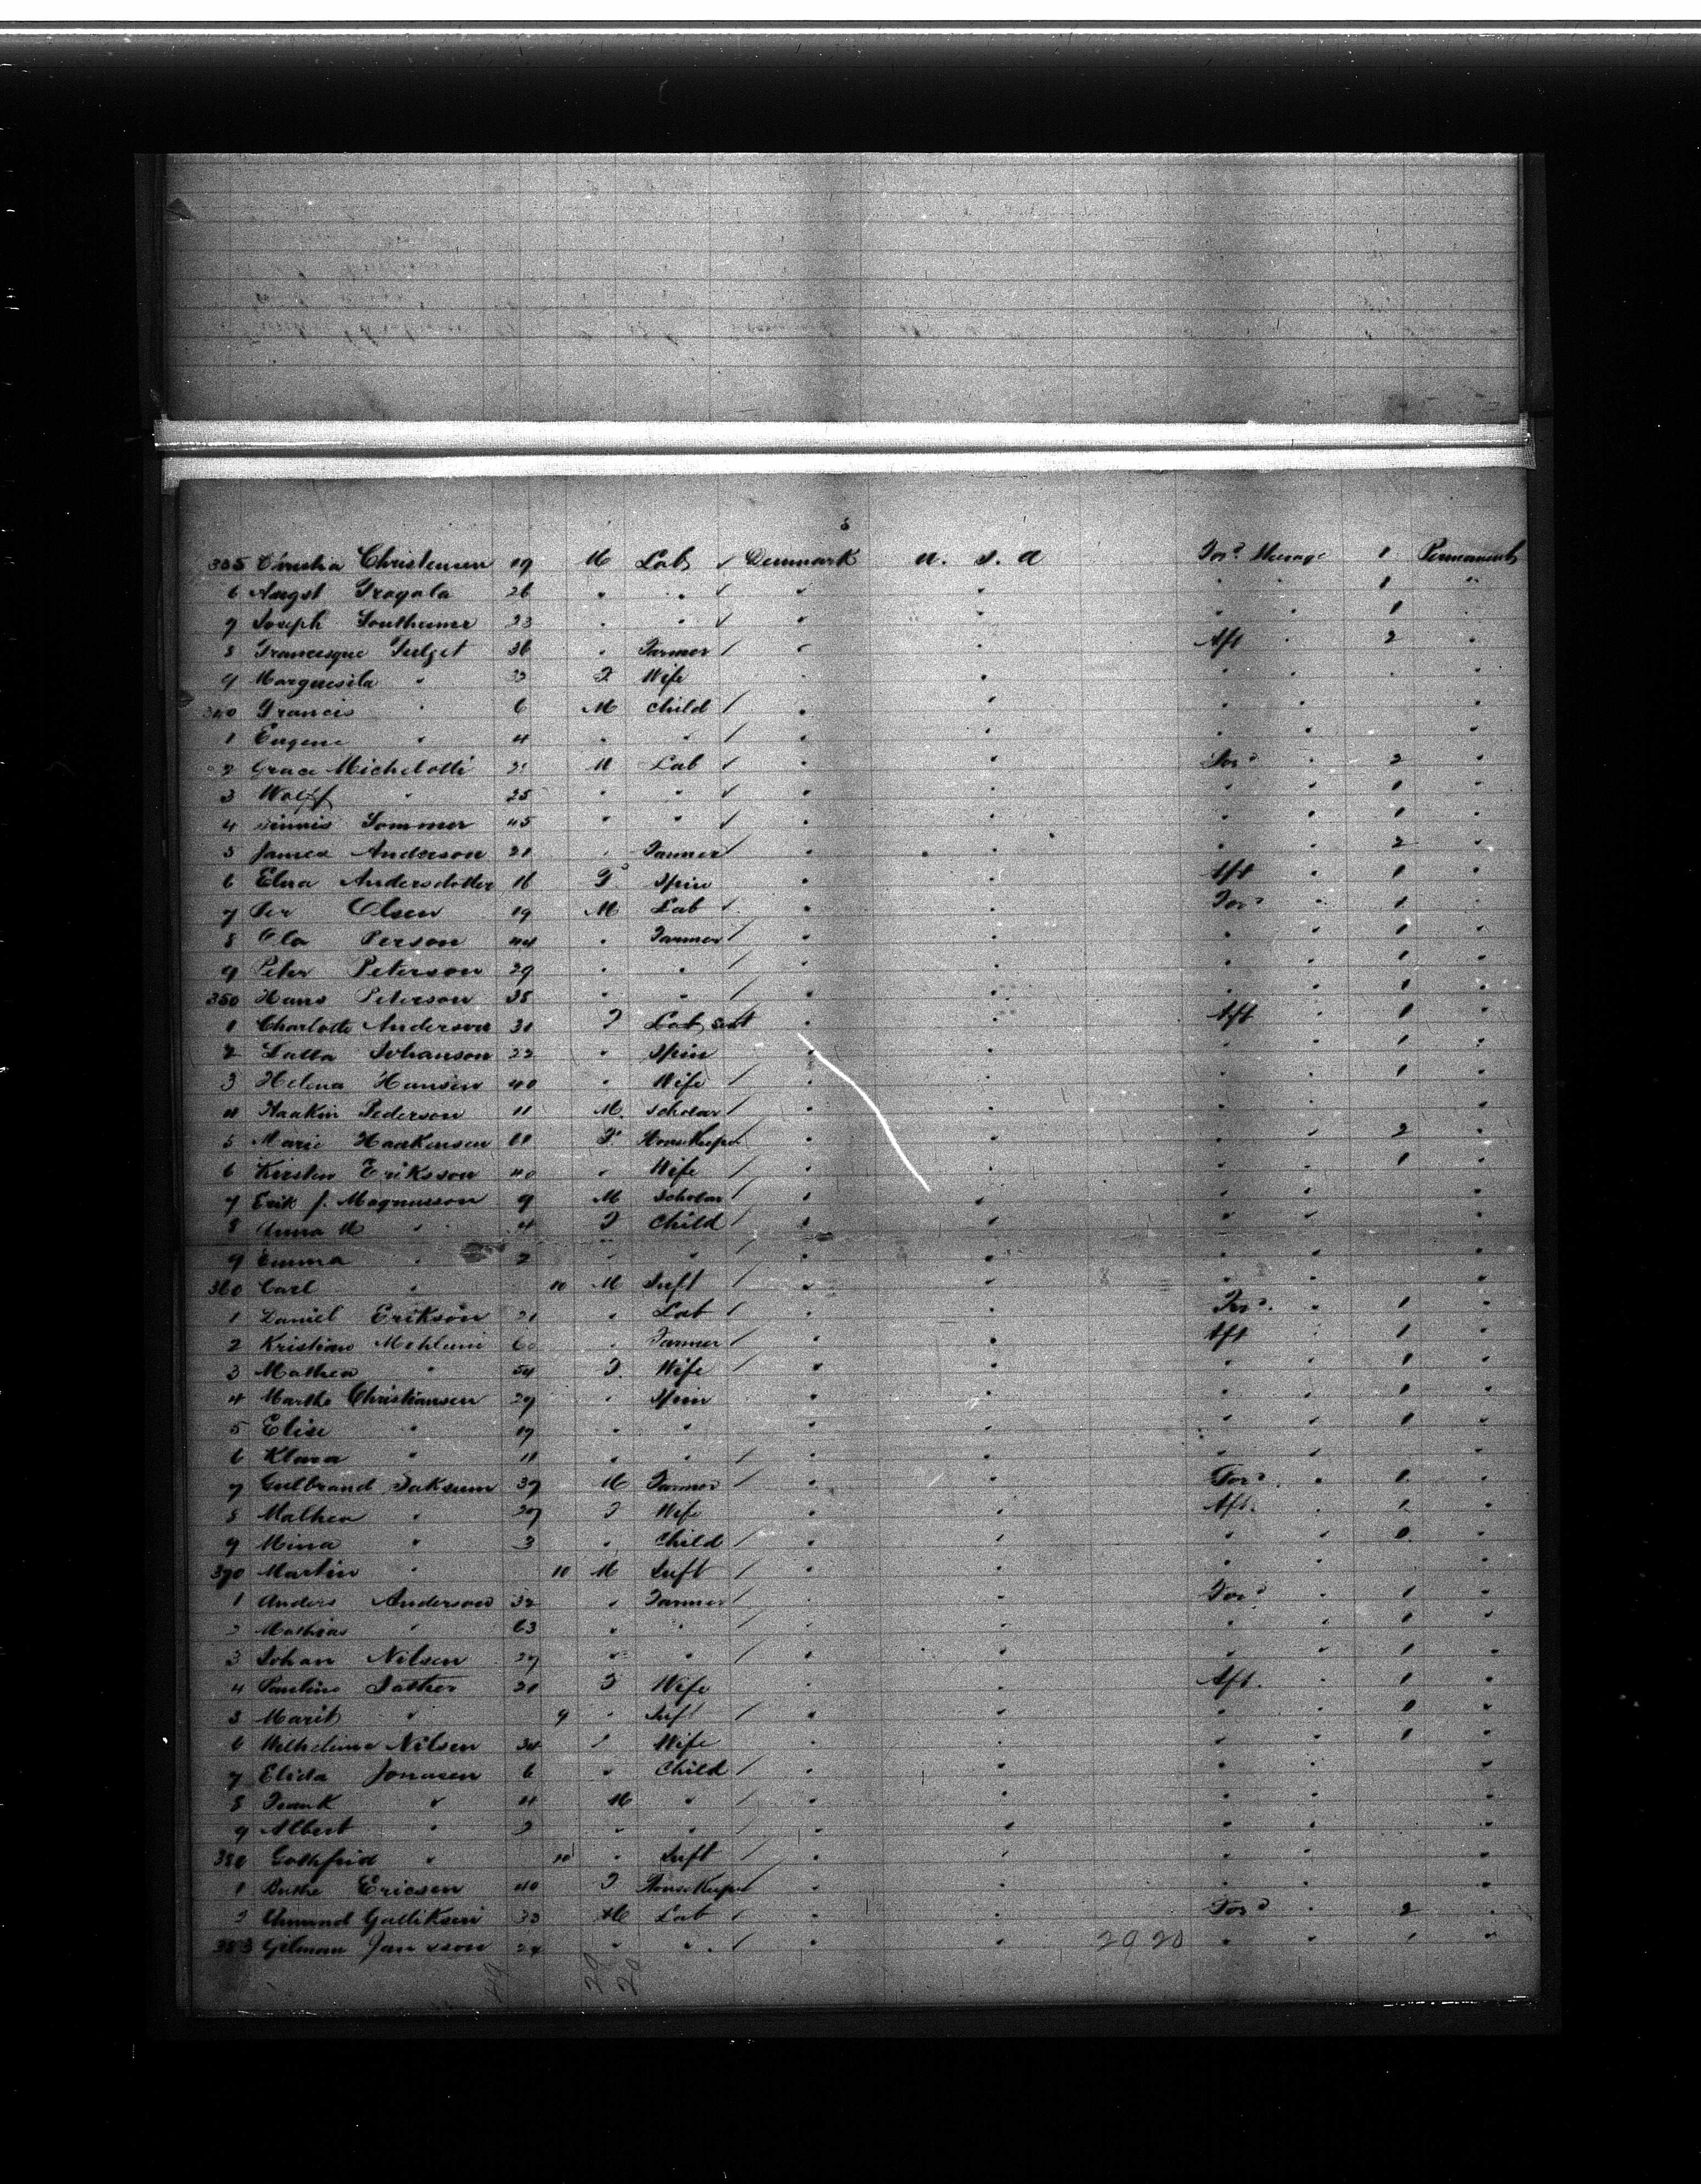 8
335 Christia Christensen 19 M Lab ✓ Denmark U. S. A For'd Steerage 1 Permanently
6 Angst Gragola 26 " " ✓ " " " " 1 "
7 Joseph 23 " " ✓ " " " " 1
8 Francesque Pulget 36 " Farmer / " " Aft " 2 "
9 " 33 F Wife " " " " " "
340 Francis " 6 M Child / " " " " "
1 Eugene " 4 " " / " " " " "
2 Grace Michelotti 21 M Lab ✓ " " For'd " 2 "
3 Wolff " 25 " " ✓ " " " " 1 "
4 Sommer 45 " " ✓ " " " " 1 "
5 James Anderson 21 " Farmer / " " " " 2 "
6 Elna Andersdotter 16 F Spin " " Aft " 1 "
7 Per Olsen 19 M Lab ✓ " " For'd " 1 "
8 Ola Person 44 " Farmer / " " " " 1 "
9 Peter Peterson 29 " " / " " " " 1 "
350 Hans Peterson 35 " " / " " " " 1 "
1 Charlotte Anderson 31 F Lab " " Aft " 1 "
2 Johanson 22 " Spin " " " " 1 "
3 Helena Hansen 40 " Wife / " " " " 1 "
4 Haakin Pederson 11 M Scholar / " " " " "
5 Marie Haakensen F HouseKeeper " " " " 2 "
6 Kirsten Eriksson 40 " Wife / " " " " 1 "
7 Erik J. Magnusson 9 M Scholar / " " " " "
8 Anna M " 4 F Child / " " " " "
9 Emma " 2 " " / " " " " "
360 Carl " 10 M Inft / " " " " "
1 Daniel Erikson 21 " Lab / " " For'd " 1 "
2 Kristian 60 " Farmer / " " Aft " 1 "
3 Mathea " 54 F Wife / " " " " 1 "
4 Marthe Christiansen 29 " Spin " " " " 1 "
5 Elise " 19 " " " " " " 1 "
6 Klara " 11 " " / " " " " "
7 Gulbrand 37 M Farmer / " " For'd " 1 "
8 Mathea " 27 F Wife " " Aft " 1 "
9 Mina " 3 " Child / " " " " 0 "
370 Martin " 10 M Inft / " " " " "
1 Anders Anderson 32 " Farmer / " " For'd " 1 "
2 Mathias " 63 " " / " " " " 1 "
3 Johan Nilsen 27 " " / " " " " 1 "
4 Pauline 21 F Wife " " Aft " 1 "
5 Marit " 9 " Inft / " " " " 0 "
6 Wilhelmine Nilsen 34 " Wife " " " " 1 "
7 Elida Jonasen 6 " Child / " " " " "
8 Frank " 4 M " / " " " " "
9 Albert " 2 " " / " " " " "
380 Gothfrid " 10 " Inft / " " " " "
1 Berthe Ericsen 40 F HouseKeeper " " " " "
2 Gulliksen 33 M Lab / " " For'd " 2 "
383 Gilman 24 " " / " " 20 20 " " "
40 20 20